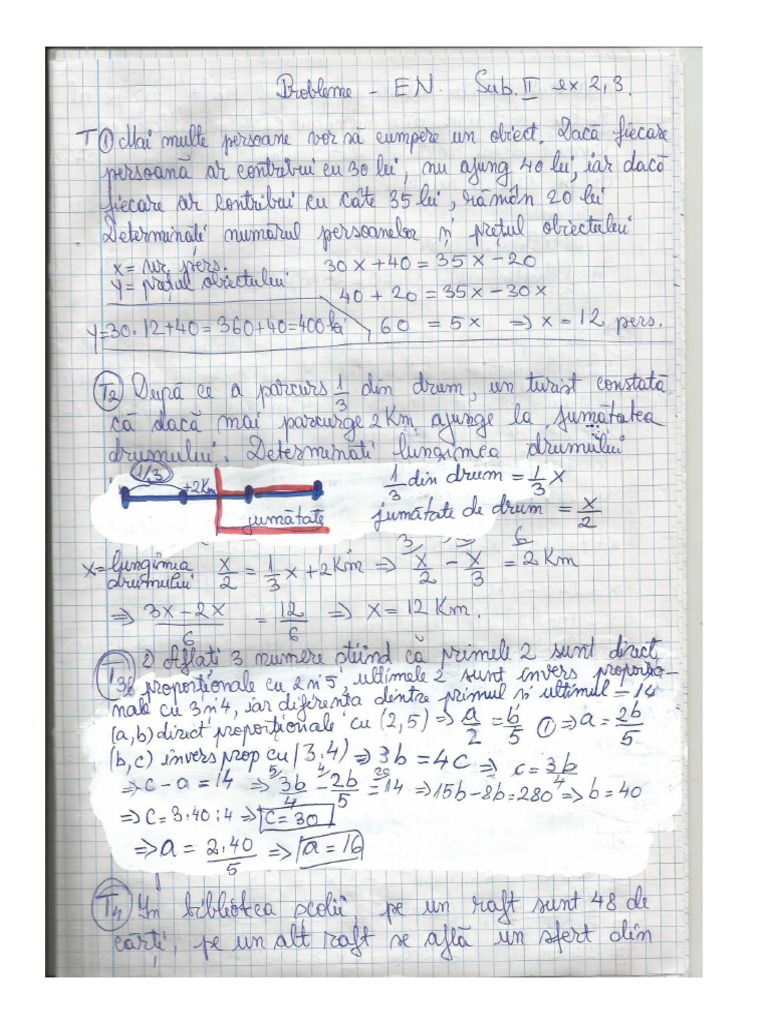 Probleme - EN. Sub. II ex 2,3.
T ① Mai multe persoane vor să cumpere un obiect. Dacă fiecare
persoană ar contribui cu 30 lei, nu ajung 40 lei, iar dacă
fiecare ar contribui cu câte 35 lei, rămân 20 lei
Determinați numărul persoanelor și prețul obiectului
x = nr. pers. 30x + 40 = 35x - 20
y = prețul obiectului
40 + 20 = 35x - 30x
y = 30 · 12 + 40 = 360 + 40 = 400 lei 60 = 5x ⇒ x = 12 pers.
T2 După ce a parcurs 1/3 din drum, un turist constată
că dacă mai parcurge 2 Km ajunge la jumătatea
drumului. Determinați lungimea drumului
1/3 +2Km 1/3 din drum = 1/3 x
jumătate jumătate de drum = x/2
x = lungimia drumului x/2 = 1/3 x + 2 Km ⇒ 3 x/2 - x/3 = 6 2 Km
⇒ 3x - 2x / 6 = 12/6 ⇒ x = 12 Km.
T3 2) Aflați 3 numere știind că primele 2 sunt direct
proporționale cu 2 și 5, ultimele 2 sunt invers proporțio-
nale cu 3 și 4, iar diferența dintre primul și ultimul = 14
(a,b) direct proporționale cu (2,5) ⇒ a/2 = b/5 ① ⇒ a = 2b/5
(b,c) invers prop cu (3,4) ⇒ 3b = 4c ⇒ c = 3b/4
⇒ c - a = 14 ⇒ 5 3b/4 - 4 2b/5 = 20 14 ⇒ 15b - 8b = 280 ⇒ b = 40
⇒ c = 3·40 : 4 ⇒ c = 30
⇒ a = 2·40/5 ⇒ a = 16
T4 În biblioteca școlii, pe un raft sunt 48 de
cărți, pe un alt raft se află un sfert din